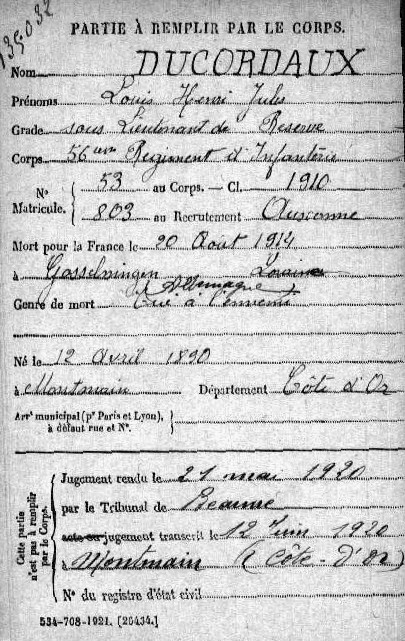 135.032
PARTIE À REMPLIR PAR LE CORPS.
Nom DUCORDAUX
Prénoms Louis Henri Jules
Grade sous Lieutenant de Réserve
Corps 56ème Régiment d'Infanterie
N° Matricule. { 53 au Corps. — Cl. 1910
803 au Recrutement Auxonne
Mort pour la France le 20 Août 1914
à Gosselmingen Lorraine
Allemagne
Genre de mort Tué à l'ennemi
Né le 12 Avril 1890
à Montmain Département Côte d'Or
Arrt municipal (pr Paris et Lyon), à défaut rue et N°. {
Cette partie n'est pas à remplir par le Corps. {
Jugement rendu le 21 mai 1920
par le Tribunal de Beaune
acte ou jugement transcrit le 12 Juin 1920
à Montmain (Côte-D'Or)
N° du registre d'état civil
534-708-1921. [26434.]